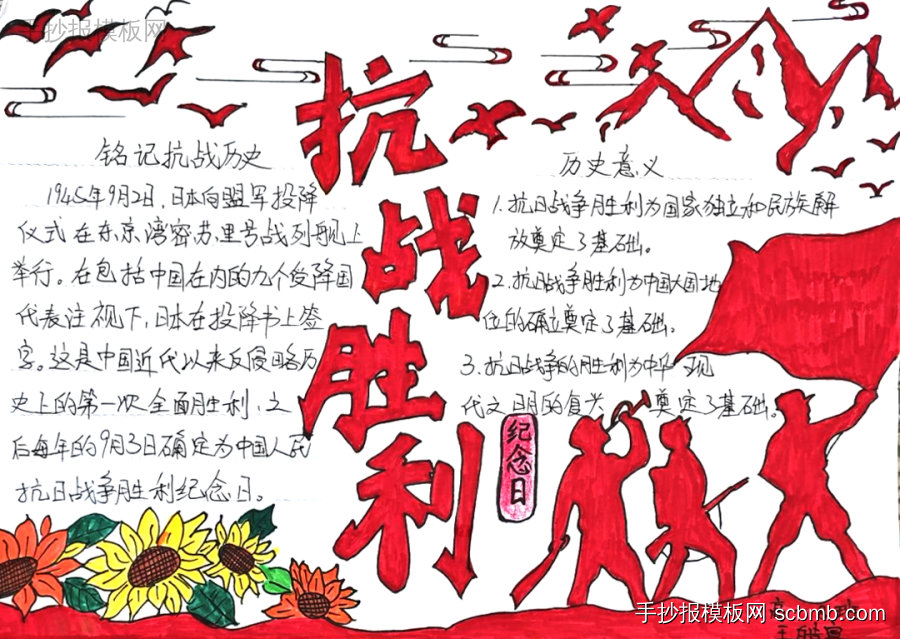 手抄报模板网
抗
战
胜
利
纪念日
铭记抗战历史
1945年9月2日,日本向盟军投降
仪式在东京湾密苏里号战列舰上
举行。在包括中国在内的九个受降国
代表注视下,日本在投降书上签
字。这是中国近代以来反侵略历
史上的第一次全面胜利,之
后每年的9月3日确定为中国人民
抗日战争胜利纪念日。
历史意义
1.抗日战争胜利为国家独立和民族解
放奠定了基础。
2.抗日战争胜利为中国大国地
位的确立奠定了基础。
3.抗日战争的胜利为中华现
代文明的复兴 奠定了基础。
手抄报模板网 scbmb.com